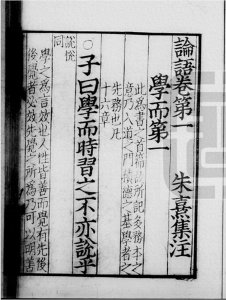 論語卷第一 朱熹集注
學而第一
此為書之首篇故所記多務本之
意乃入道之門積德之基學者之
先務也凡
十六章
○子曰學而時習之不亦說乎
說悅
同
學之為言效也人性皆善而覺有先後
後覺者必效先覺之所為乃可以明善